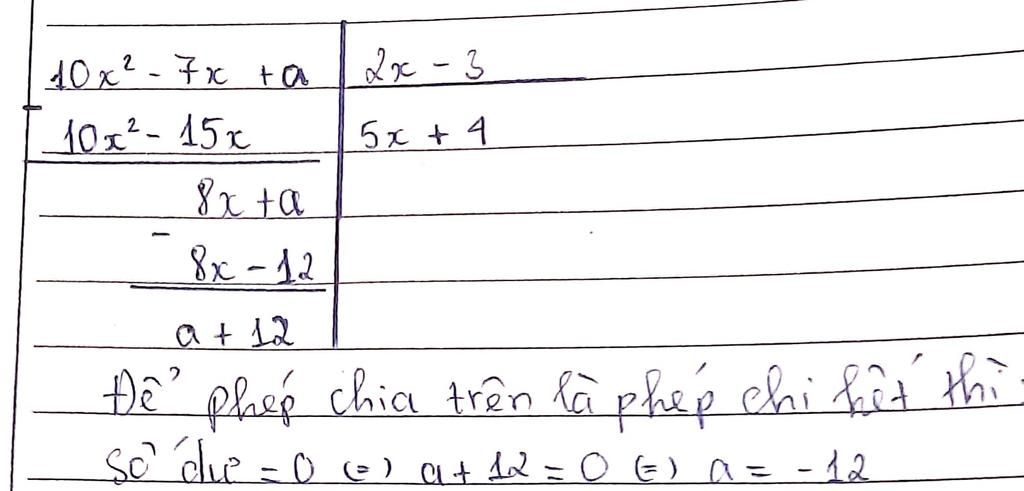 10x² - 7x + a | 2x - 3
10x² - 15x | 5x + 4
8x + a
-
8x - 12
a + 12
Để phép chia trên là phép chi hết thì:
số dư = 0 (=) a + 12 = 0 (=) a = -12